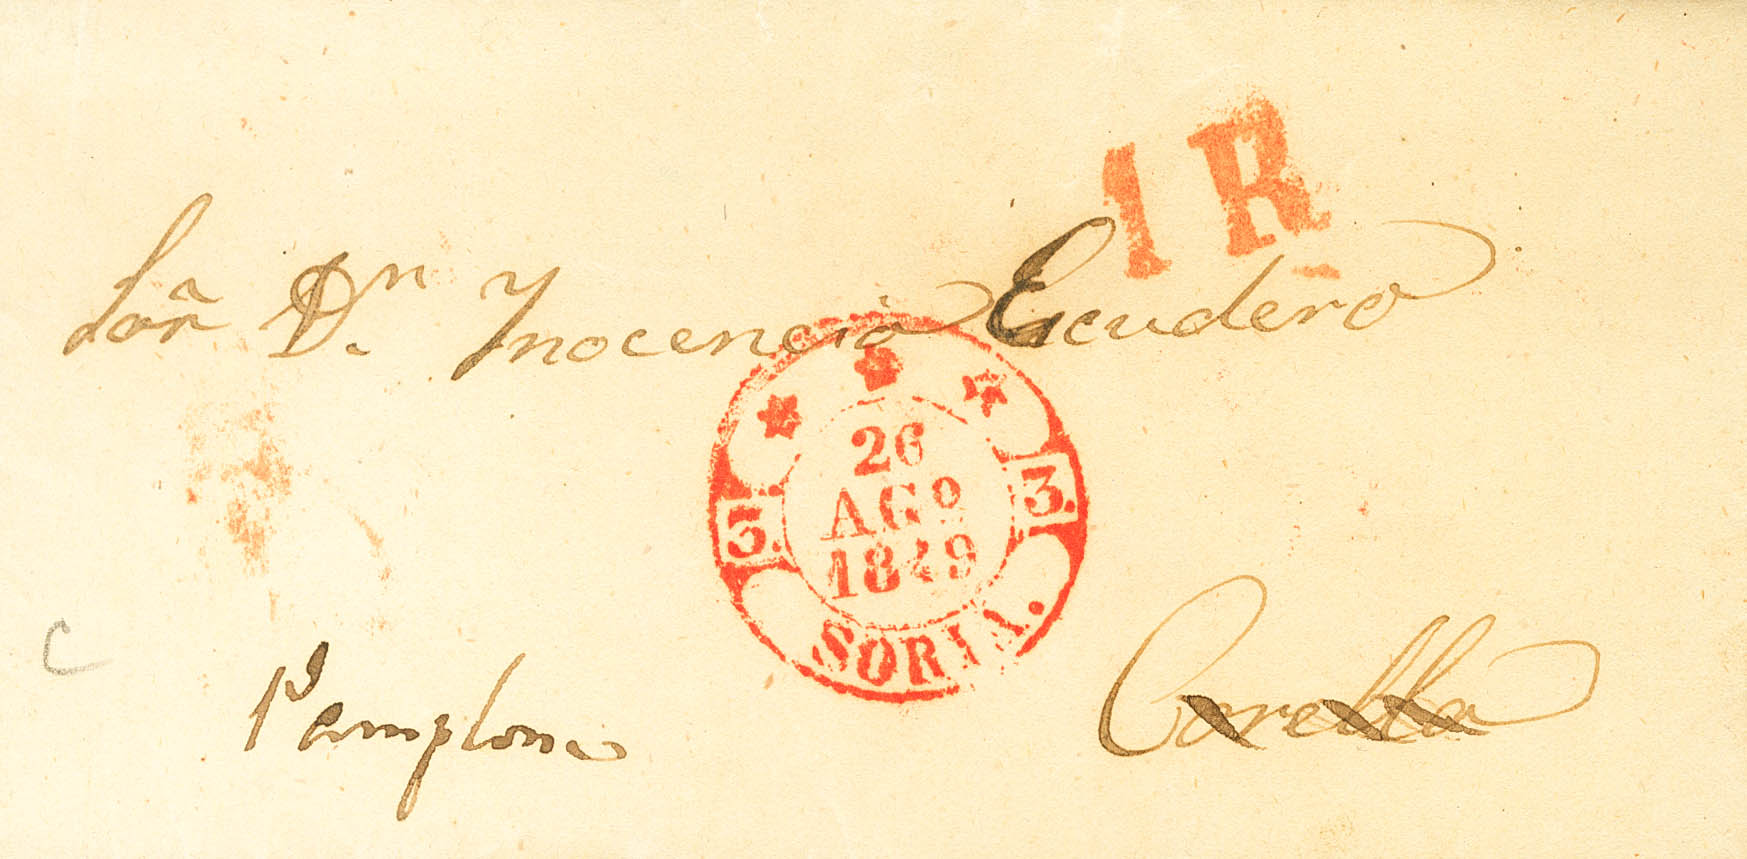 1R
Sor Dn. Ynocencio Escudero
26
AGO
1849
3. 3.
SORIA.
Pamplona Corella
C